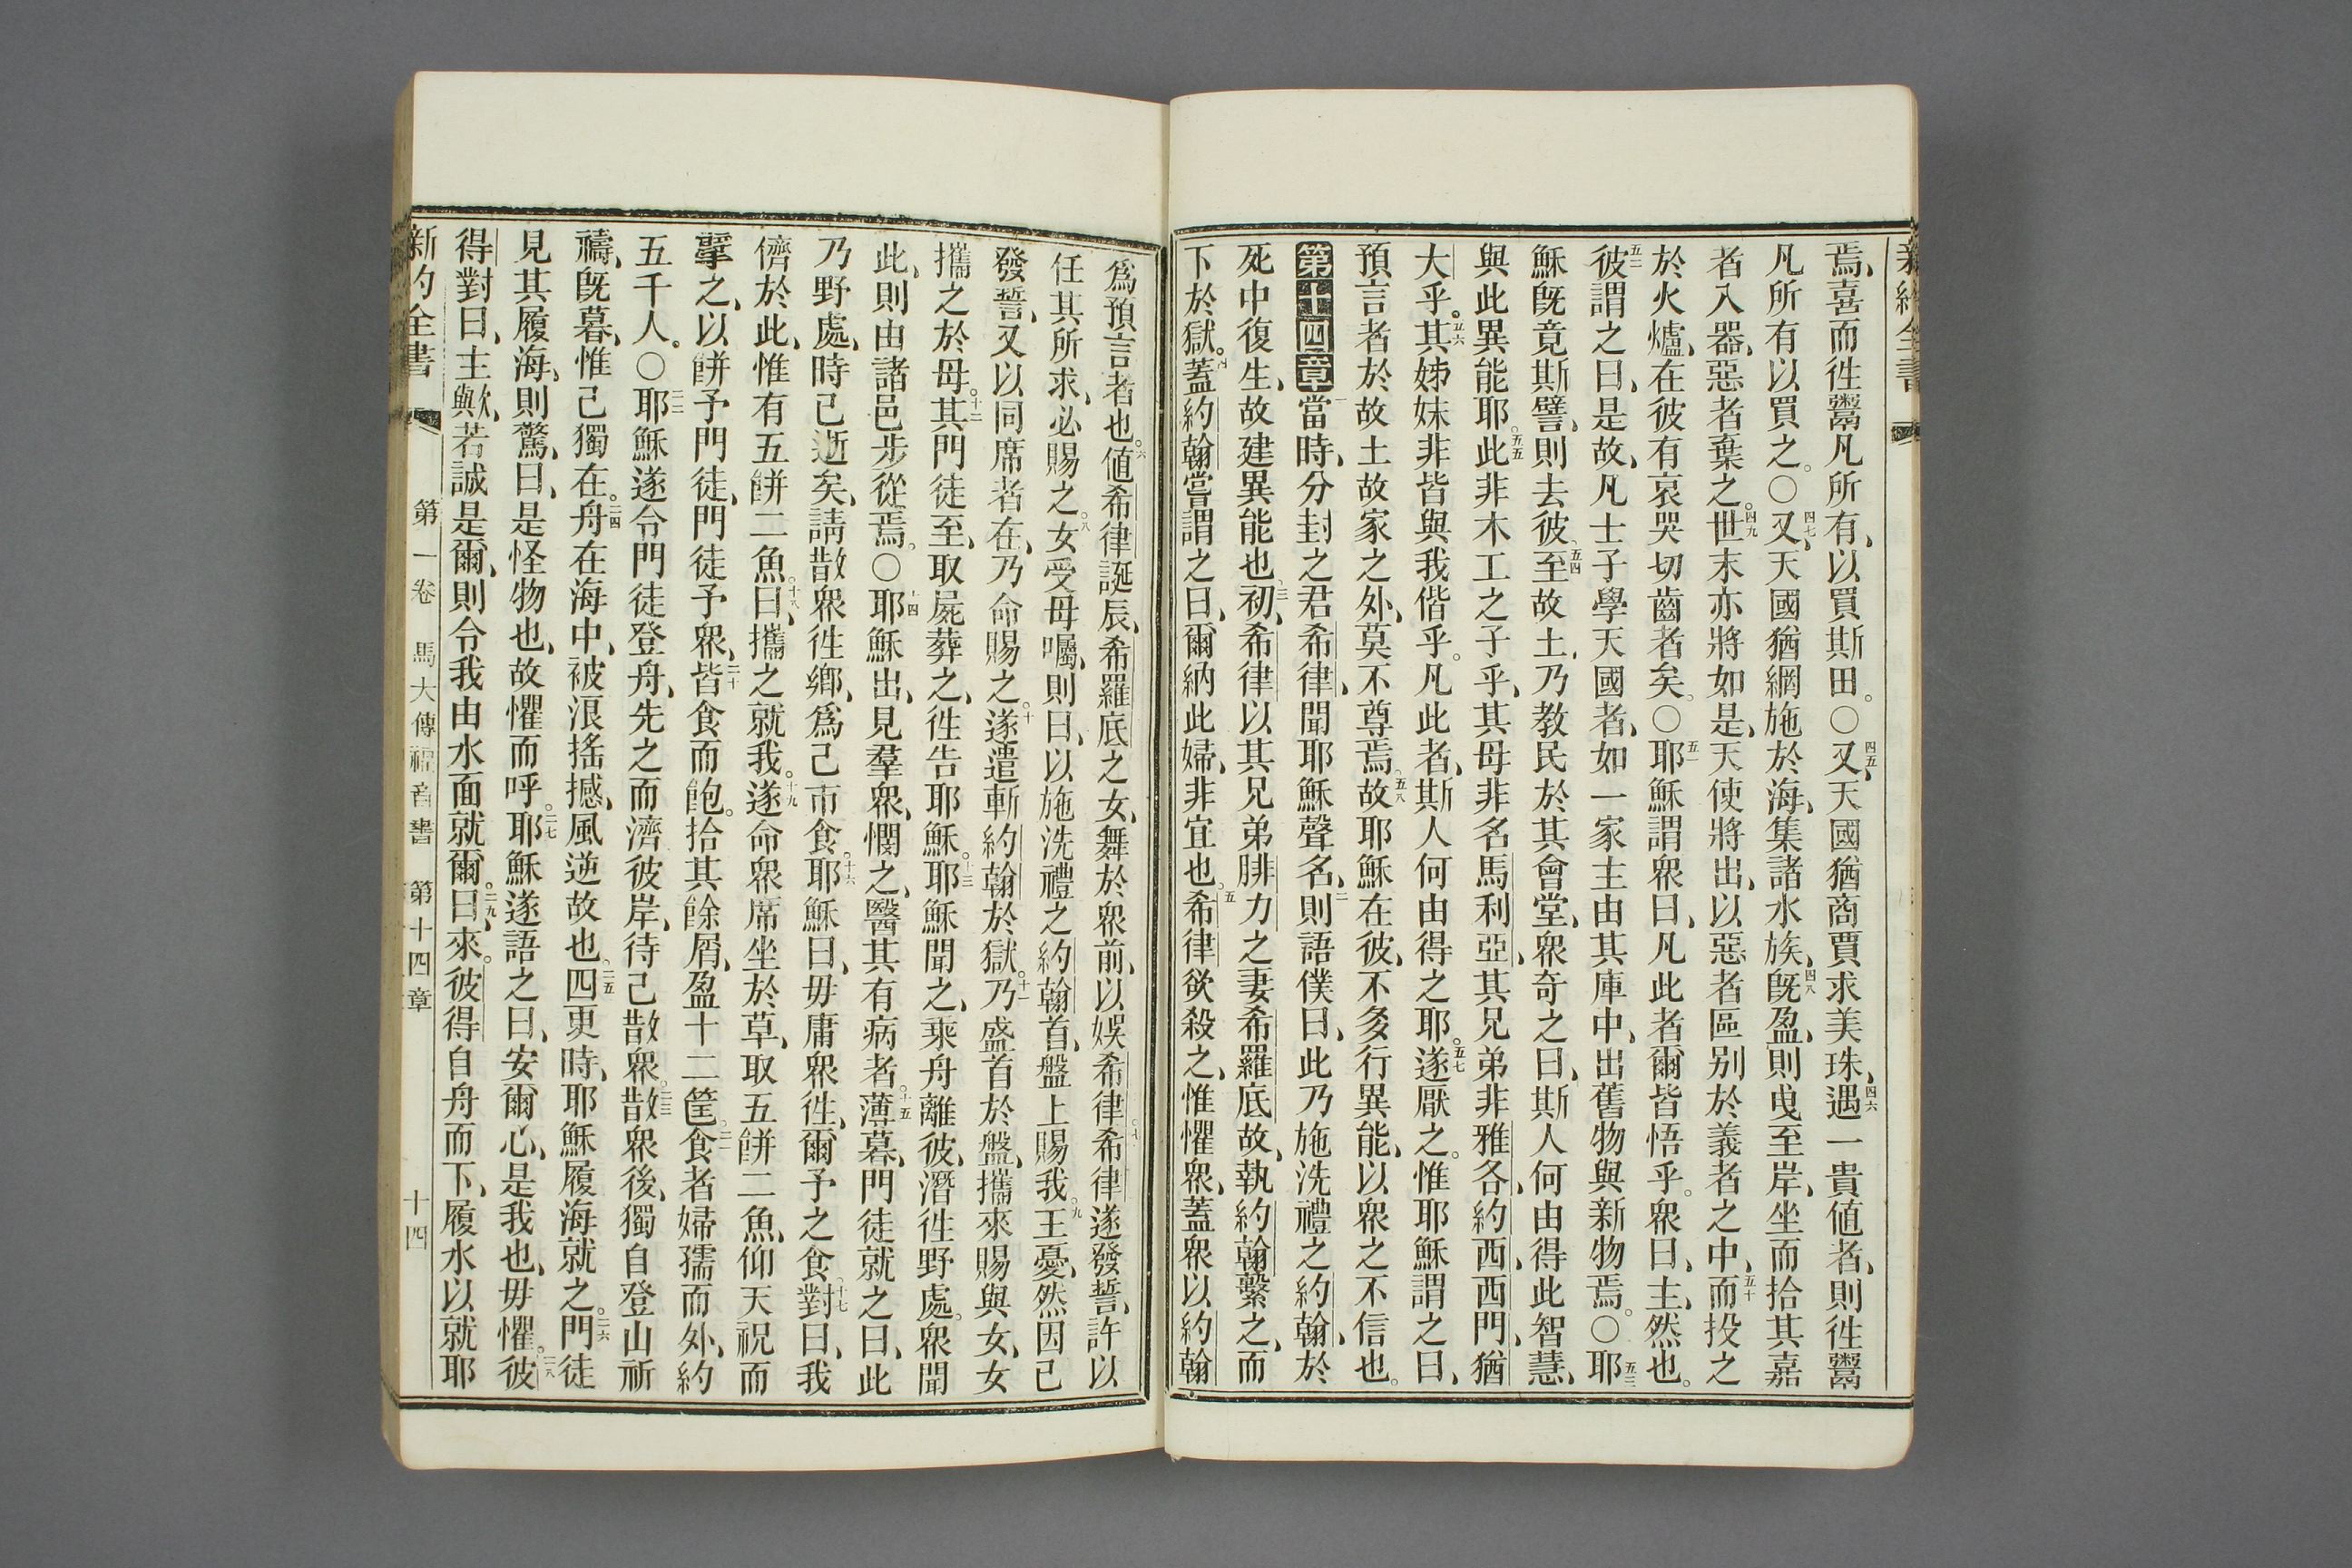 焉、喜而徃鬻凡所有、以買斯田。○四五又、天國猶商賈求美珠、四六遇一貴値者、則徃鬻
凡所有以買之。○四七又、天國猶網施於海、集諸水族、四八旣盈、則曵至岸、坐而拾其嘉
者入器、惡者棄之。四九世末亦將如是、天使將出、以惡者區别於義者之中、五十而投之
於火爐、在彼有哀哭切齒者矣。○五一耶穌謂衆曰、凡此者爾皆悟乎。衆曰、主、然也。
五二彼謂之曰、是故、凡士子學天國者、如一家主由其庫中、出舊物與新物焉。○五三耶
穌旣竟斯譬、則去彼、五四至故土、乃教民於其會堂、衆奇之曰、斯人何由得此智慧、
與此異能耶。五五此非木工之子乎、其母非名馬利亞、其兄弟非雅各、約西、西門、猶
大乎。五六其姊妹非皆與我偕乎。凡此者、斯人何由得之耶。五七遂厭之。惟耶穌謂之曰、
預言者於故土故家之外、莫不尊焉。五八故耶穌在彼、不多行異能、以衆之不信也。
第十四章一當時、分封之君希律、聞耶穌聲名、二則語僕曰、此乃施洗禮之約翰、於
死中復生、故建異能也。三初、希律以其兄弟腓力之妻希羅底故、執約翰繫之、而
下於獄。四蓋約翰嘗謂之曰、爾納此婦、非宜也。五希律欲殺之、惟懼衆、蓋衆以約翰
爲預言者也。六値希律誕辰、希羅底之女、舞於衆前、以娛希律。七希律遂發誓、許以
任其所求、必賜之。八女受母囑、則曰、以施洗禮之約翰首、盤上賜我。九王憂、然因己
發誓、又以同席者在、乃命賜之。十遂遣斬約翰於獄。十一乃盛首於盤、攜來賜與女、女
攜之於母。十二其門徒至、取屍葬之、徃告耶穌。十三耶穌聞之、乘舟離彼、潛徃野處。衆聞
此、則由諸邑步從焉。○十四耶穌出、見羣衆、憫之、醫其有病者。十五薄暮、門徒就之曰、此
乃野處、時已逝矣、請散衆徃鄉、爲己市食。十六耶穌曰、毋庸衆徃、爾予之食。十七對曰、我
儕於此、惟有五餠二魚。十八曰、攜之就我。十九遂命衆席坐於草、取五餠二魚、仰天祝而
擘之、以餠予門徒、門徒予衆、二十皆食而飽。拾其餘屑、盈十二筐。二一食者婦孺而外、約
五千人。○二二耶穌遂令門徒登舟、先之而濟彼岸、待己散衆。二三散衆後、獨自登山祈
禱、旣暮、惟己獨在。二四舟在海中、被浪搖撼、風逆故也。二五四更時、耶穌履海就之。二六門徒
見其履海、則驚、曰、是怪物也、故懼而呼。二七耶穌遂語之曰、安爾心、是我也、毋懼。二八彼
得對曰、主歟、若誠是爾、則令我由水面就爾。二九曰、來。彼得自舟而下、履水以就耶
新約全書 第一卷 馬大傳福音書 第十四章 十四